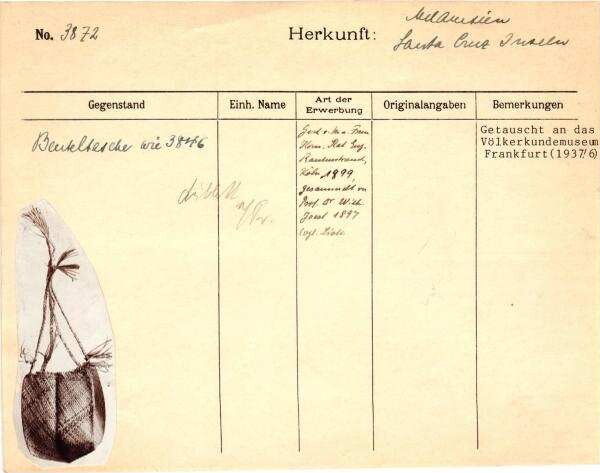 No. 3872
Herkunft: Melanesien
Santa Cruz Inseln
Gegenstand
Einh. Name
Art der Erwerbung
Originalangaben
Bemerkungen
Beuteltasche wie 3846
Gesch. v. H. u. Frau
Kom. Rat Eug.
Rautenstrauch,
Köln 1899
gesammelt von
Prof. Dr Wilh.
Joest 1897
Getauscht an das
Völkerkundemuseum
Frankfurt(1937/6)